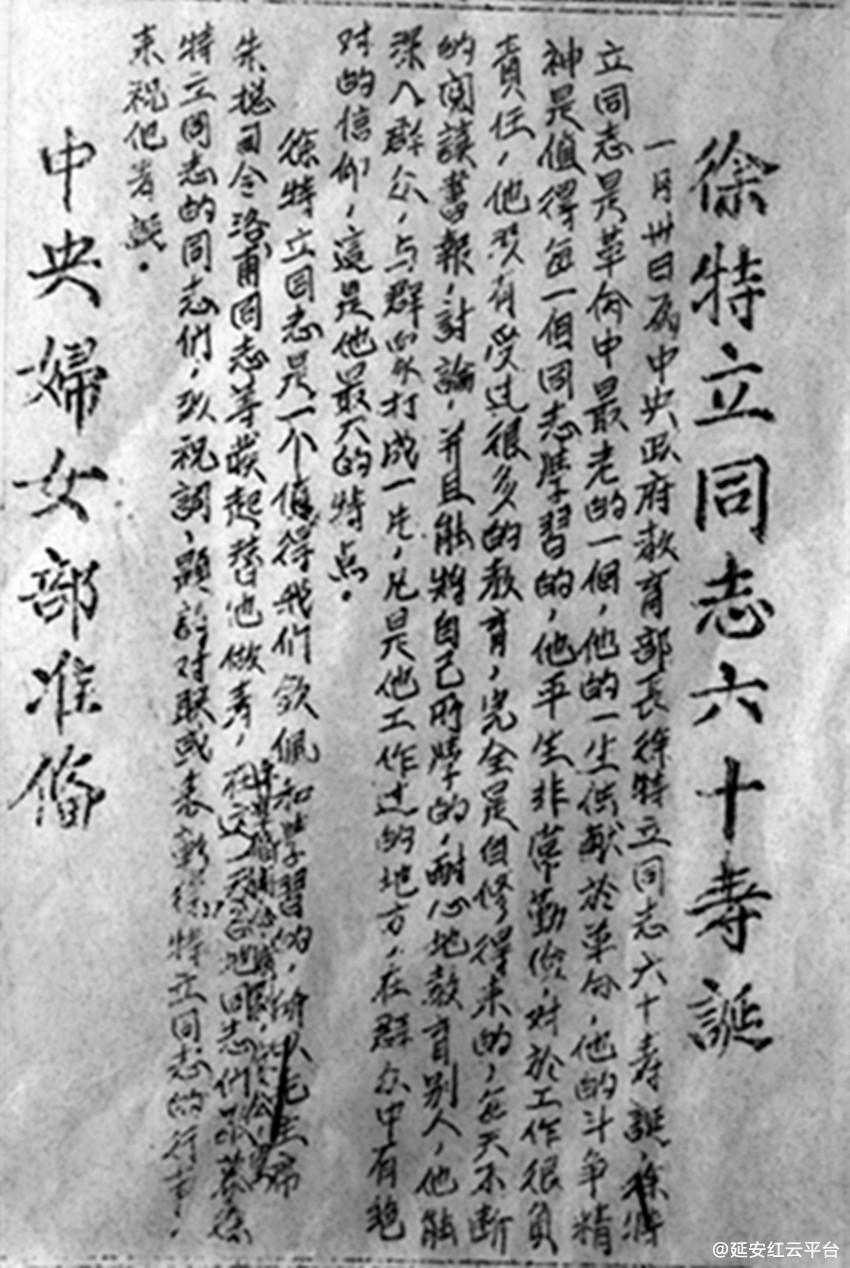 徐特立同志六十寿誕
一月卅日为中央政府教育部长徐特立同志六十寿誕，徐特
立同志是革命中最老的一個，他的一生供献於革命，他的斗争精
神是值得每一個同志學習的，他平生非常勤俭，对於工作很負
責任，他没有受过很多的教育，完全是自修得来的，每天不断
的閲读書報，討論，并且能将自己所學的，耐心地教育别人，他能
深入群众，与群众打成一片，凡是他工作过的地方，在群众中有絶
对的信仰，這是他最大的特点。
徐特立同志是一个值得我们欽佩和學習的，所以毛主席
朱總司令洛甫同志等發起替他做寿，在这天各地同志們敬慕徐
特立同志的同志們，以祝詞、題詩对联或表彰徐特立同志的行事，
来祝他寿誕。
中央婦女部准俻
@延安红云平台